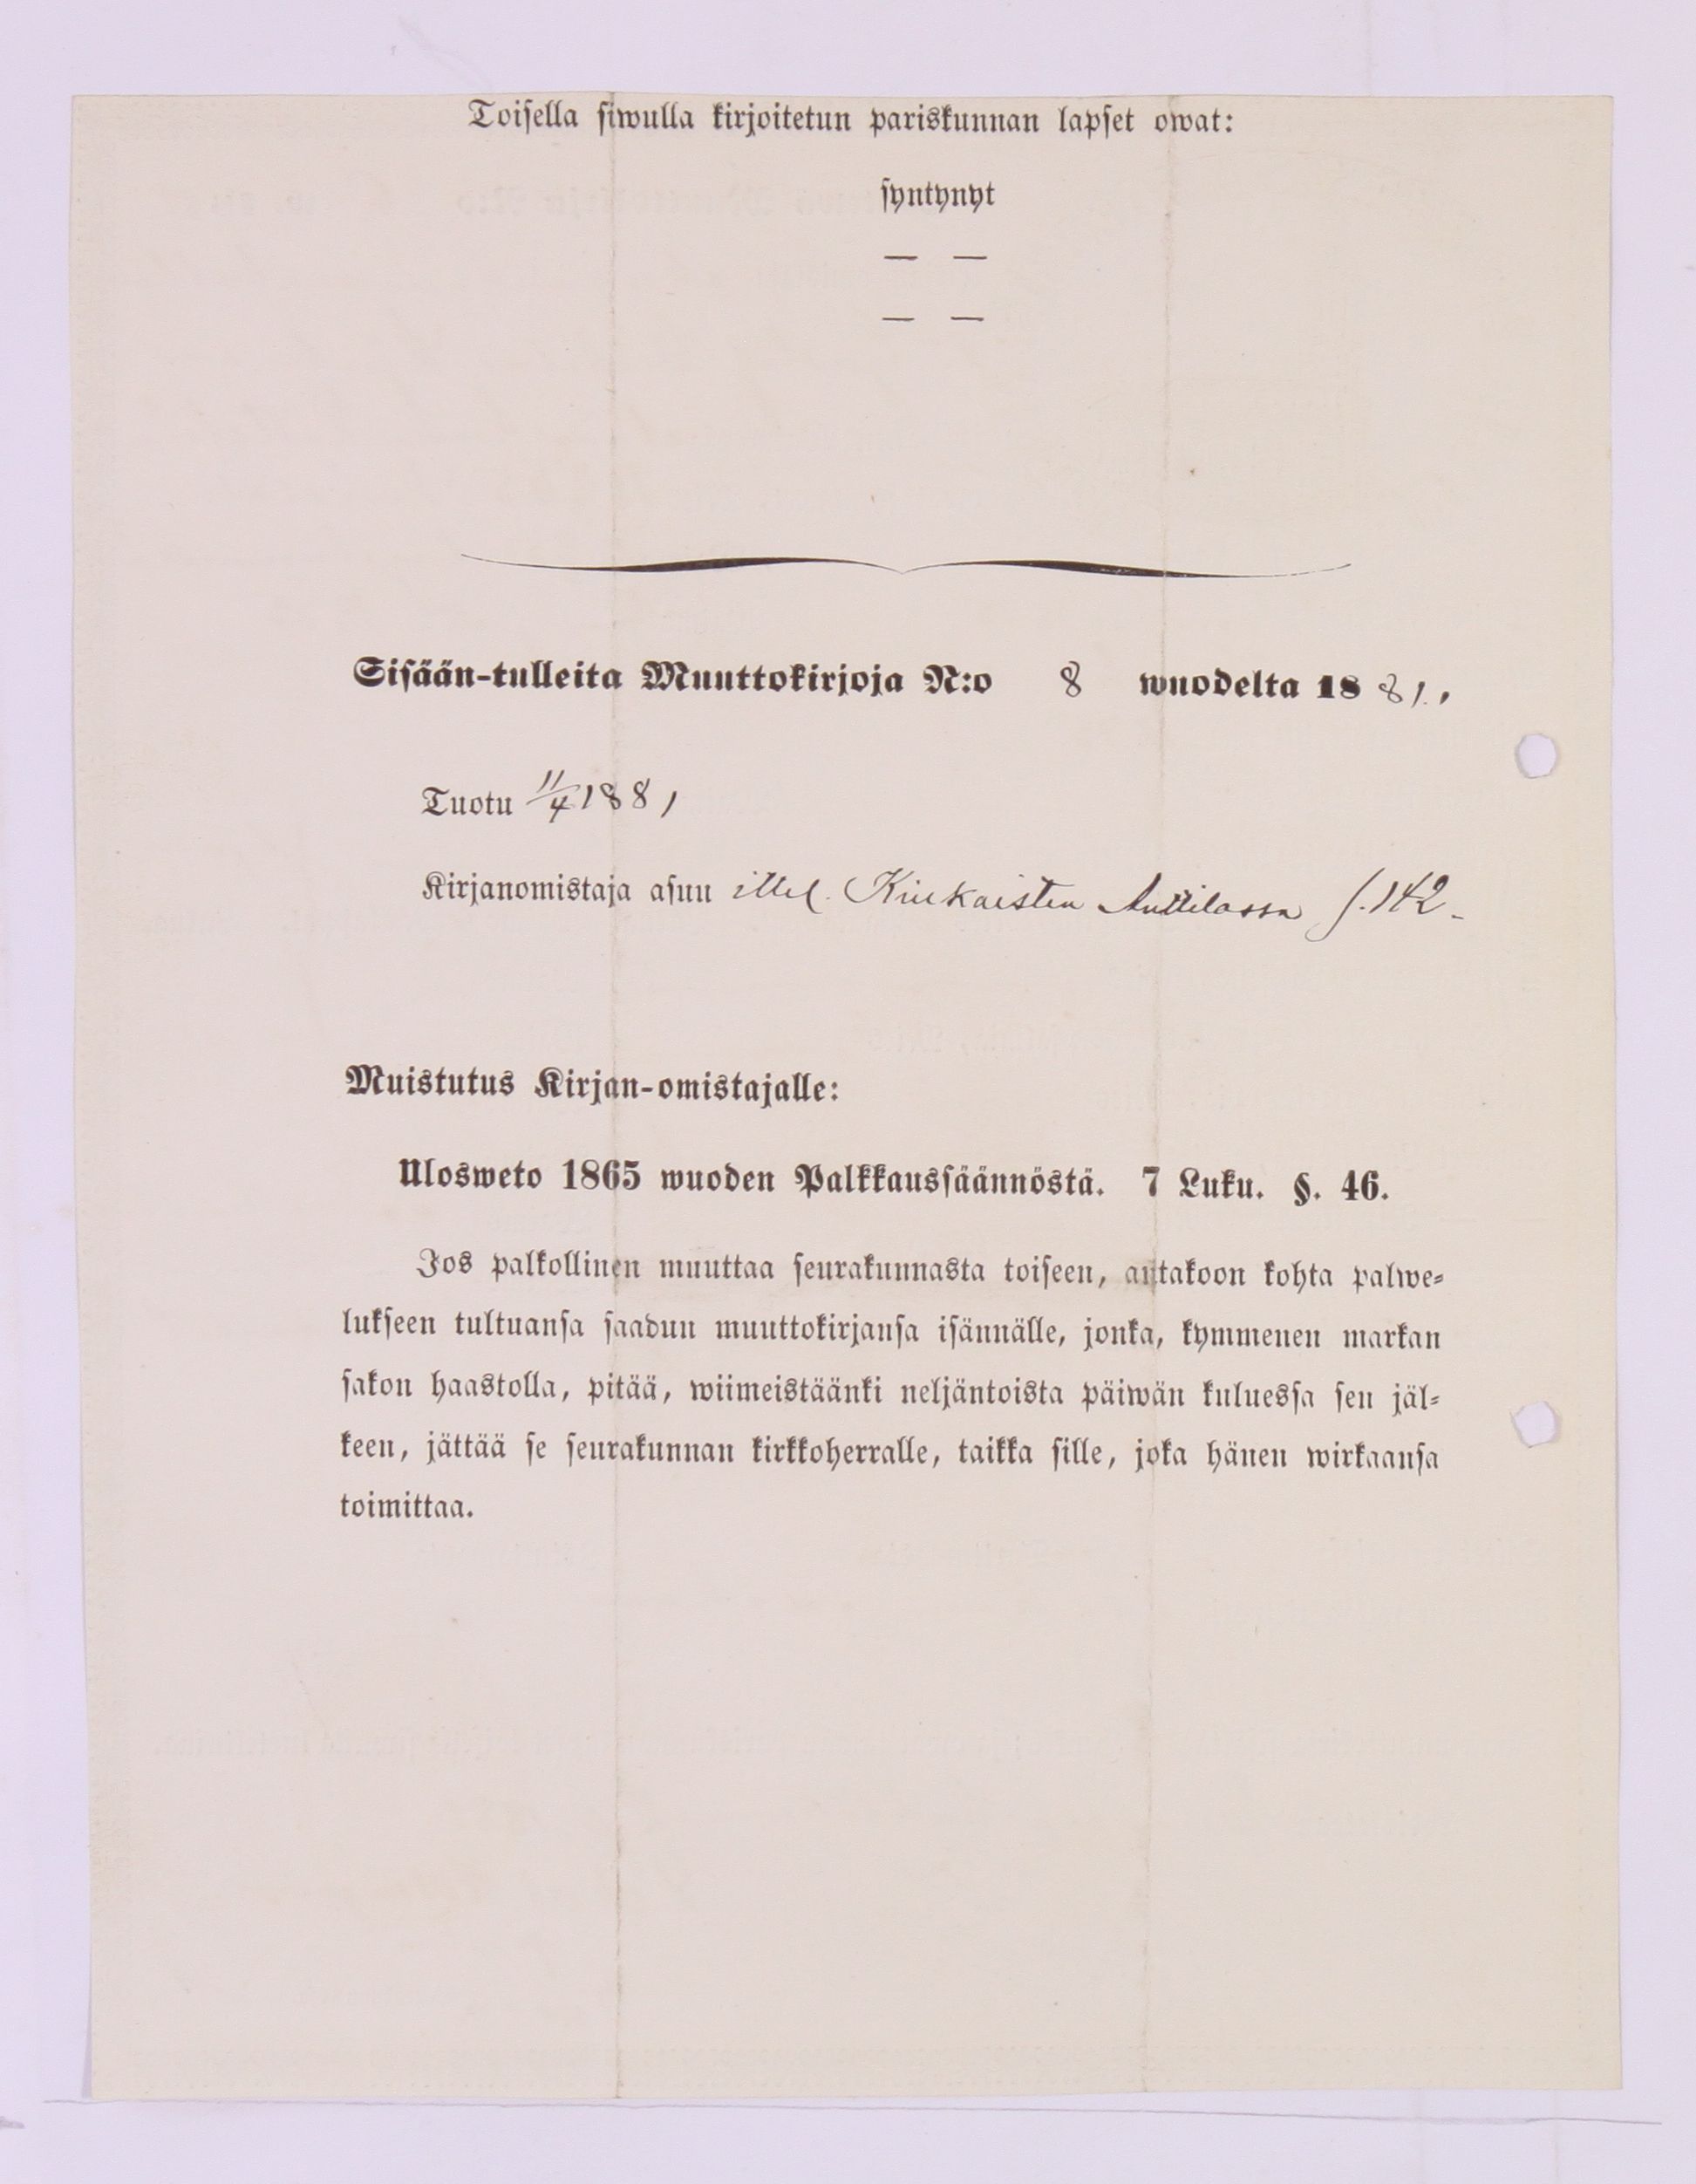 Toisella siwulla kirjoitetun pariskunnan lapset owat:
syntynyt
— —
— —
Sisään-tulleita Muuttokirjoja N:o 8 wuodelta 1881.
Tuotu 11/4 1881
Kirjanomistaja asuu Kiukaisten Anttilassa f. 142.
Muistutus Kirjan-omistajalle:
Ulosweto 1865 wuoden Palkkaussäännöstä. 7 Luku. §. 46.
Jos palkollinen muuttaa seurakunnasta toiseen, antakoon kohta palwe-
lukseen tultuansa saadun muuttokirjansa isännälle, jonka, kymmenen markan
sakon haastolla, pitää, wiimeistäänki neljäntoista päiwän kuluessa sen jäl-
keen, jättää se seurakunnan kirkkoherralle, taikka sille, joka hänen wirkaansa
toimittaa.